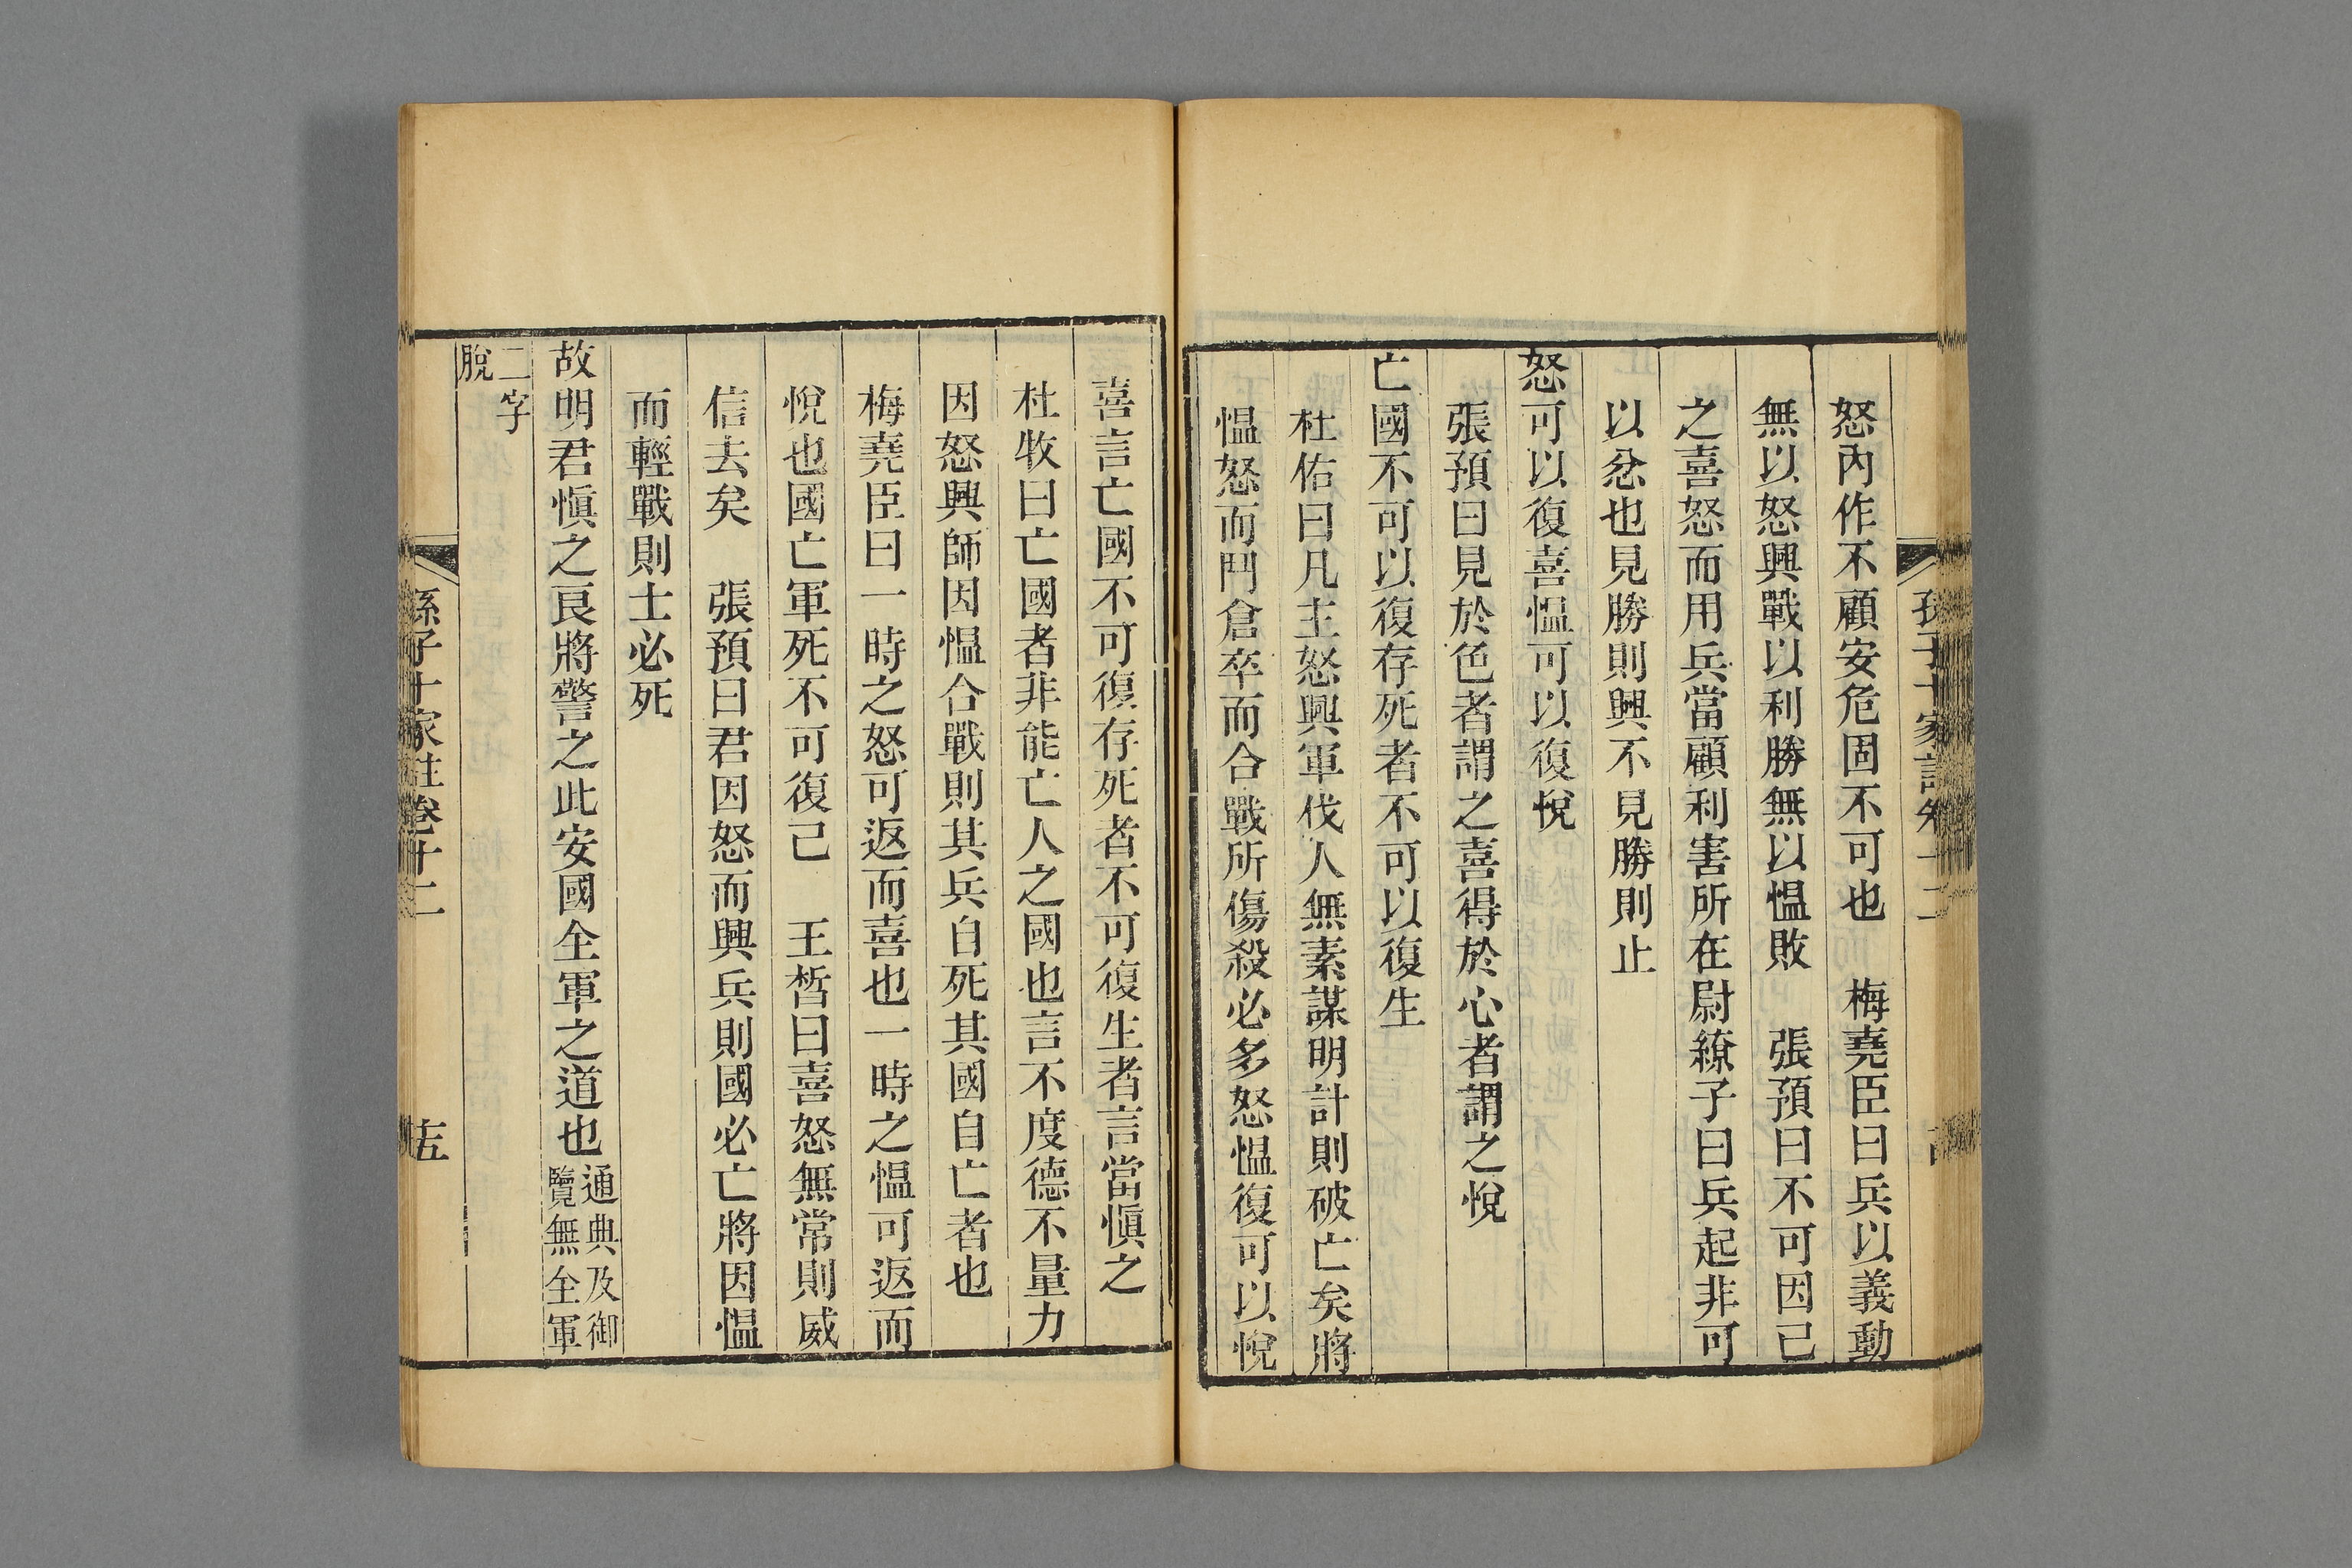 怒內作不顧安危固不可也　梅堯臣曰兵以義動
無以怒興戰以利勝無以愠敗　張預曰不可因己
之喜怒而用兵當顧利害所在尉繚子曰兵起非可
以忿也見勝則興不見勝則止
怒可以復喜愠可以復悅
張預曰見於色者謂之喜得於心者謂之悅
亡國不可以復存死者不可以復生
杜佑曰凡主怒興軍伐人無素謀明計則破亡矣將
愠怒而鬥倉卒而合戰所傷殺必多怒愠復可以悅
喜言亡國不可復存死者不可復生者言當慎之
杜牧曰亡國者非能亡人之國也言不度德不量力
因怒興師因愠合戰則其兵自死其國自亡者也
梅堯臣曰一時之怒可返而喜也一時之愠可返而
悅也國亡軍死不可復已　王晳曰喜怒無常則威
信去矣　張預曰君因怒而興兵則國必亡將因愠
而輕戰則士必死
故明君慎之良將警之此安國全軍之道也
通典及御
覽無全軍
二字
脫
孫子十家註卷十二
十五